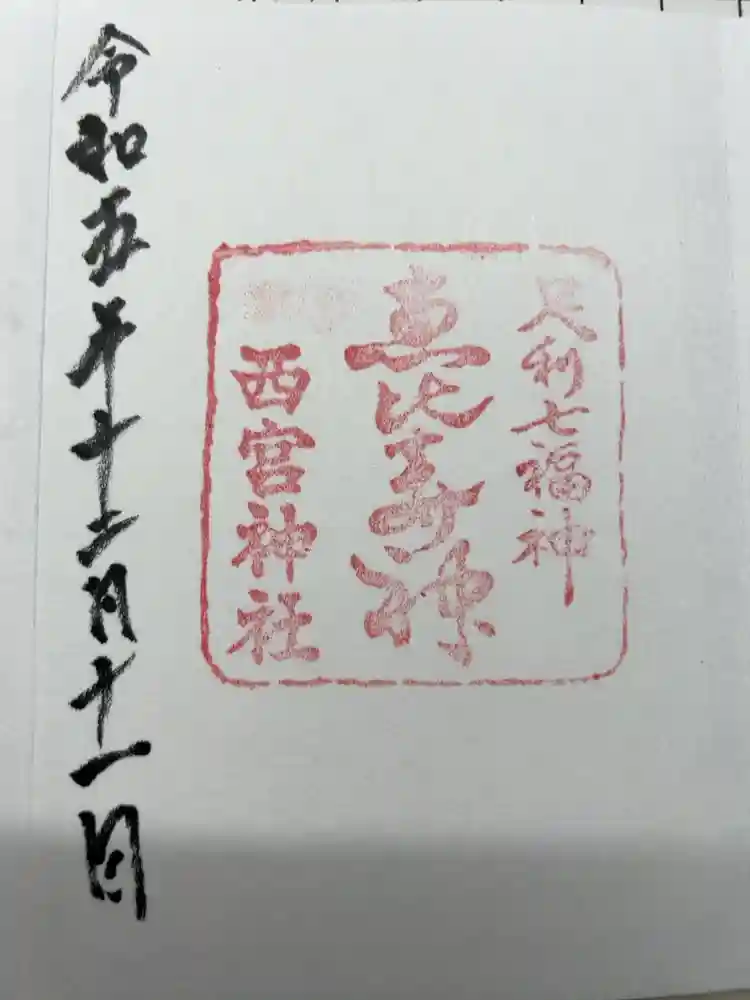 足利七福神
恵比寿神
西宮神社
令和五年十二月十一日